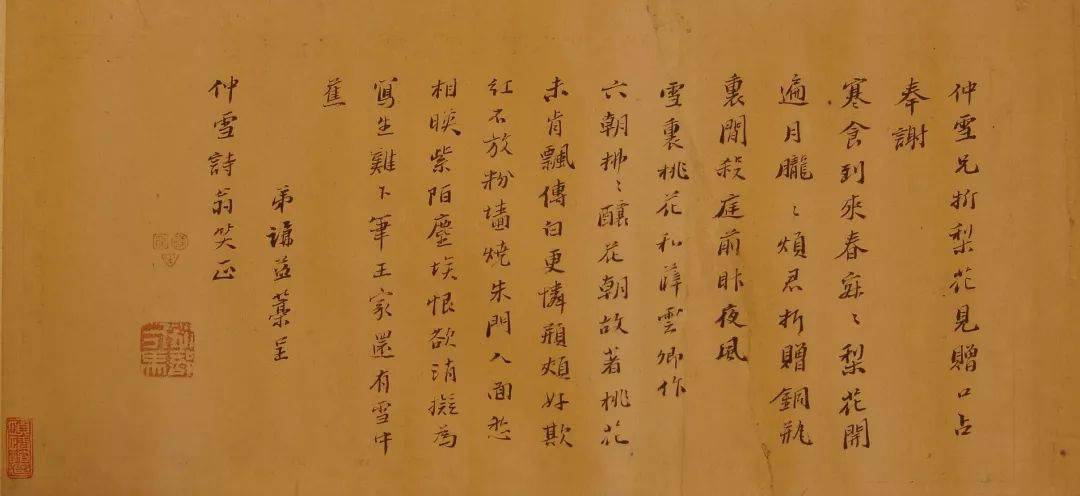 仲雪兄折梨花見贈口占
奉謝
寒食到來春寂〻梨花開
遍月朧〻煩君折贈銅瓶
裏閒殺庭前昨夜風
雪裏桃花和薛雲卿作
六朝拂〻釀花朝故著桃花
未肯飄傳白更憐頩頰好欺
紅不放粉墻燒朱門人面愁
相暎紫陌塵埃恨欲消擬為
寫生難下筆王家還有雪中
蕉
弟謙益藁呈
仲雪詩翁笑正